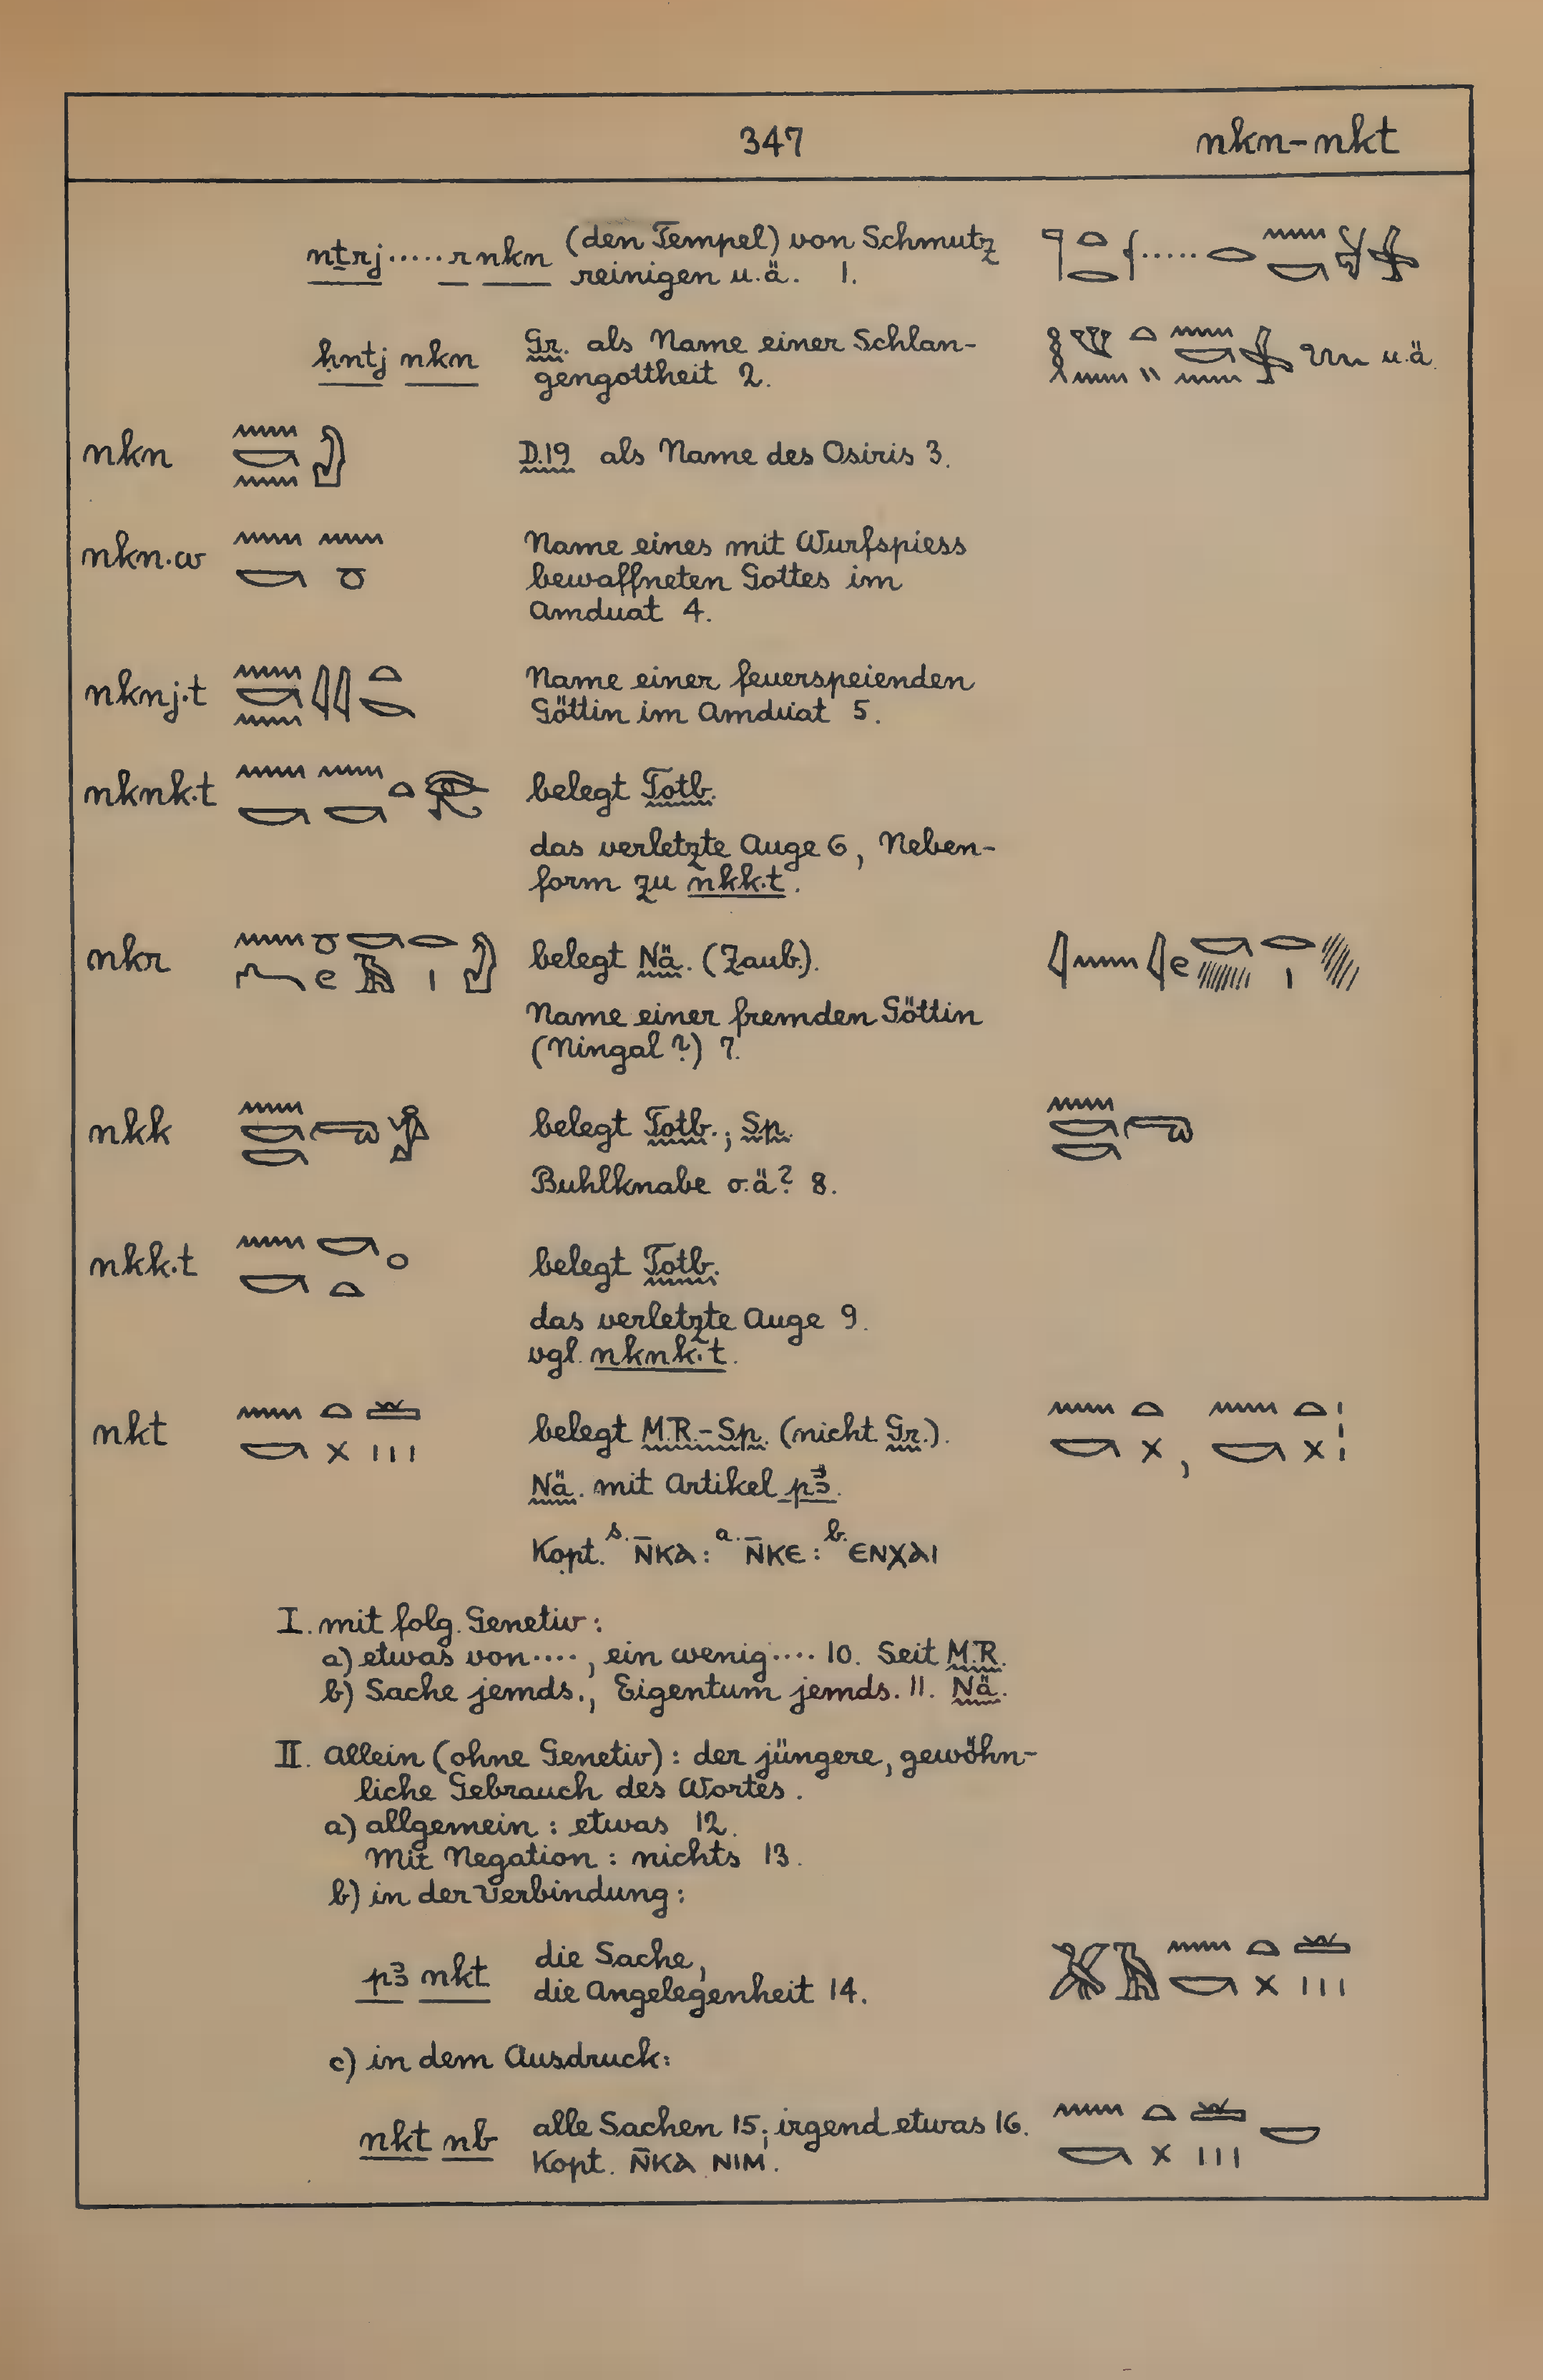 347 nkn-nkt
nṯrj ····· r nkn (den Tempel) von Schmutz
reinigen u.ä. 1.
ḥntj nkn Gr. als Name einer Schlan-
gengottheit 2. u.ä.
nkn D.19 als Name des Osiris 3.
nkn.w Name eines mit Wurfspiess
bewaffneten Gottes im
Amduat 4.
nknj.t Name einer feuerspeienden
Göttin im Amduat 5.
nknk.t belegt Totb.
das verletzte Auge 6, Neben-
form zu nkk.t.
nkr belegt Nä. (Zaub.).
Name einer fremden Göttin
(Ningal?) 7.
nkk belegt Totb.; Sp.
Buhlknabe o.ä? 8.
nkk.t belegt Totb.
das verletzte Auge 9.
vgl. nknk.t.
nkt belegt M.R.-Sp. (nicht Gr.).
Nä. mit Artikel pꜣ.
Kopt. s. N̄ⲔⲀ: a. N̄ⲔⲈ: b. ⲈⲚⲬⲀⲒ
I. mit folg. Genetiv:
a) etwas von ····, ein wenig ···· 10. Seit M.R.
b) Sache jemds., Eigentum jemds. 11. Nä.
II. Allein (ohne Genetiv): der jüngere, gewöhn-
liche Gebrauch des Wortes.
a) allgemein: etwas 12.
Mit Negation: nichts 13.
b) in der Verbindung:
pꜣ nkt die Sache,
die Angelegenheit 14.
c) in dem Ausdruck:
nkt nb alle Sachen 15; irgend etwas 16.
Kopt. N̄ⲔⲀ ⲚⲒⲘ.